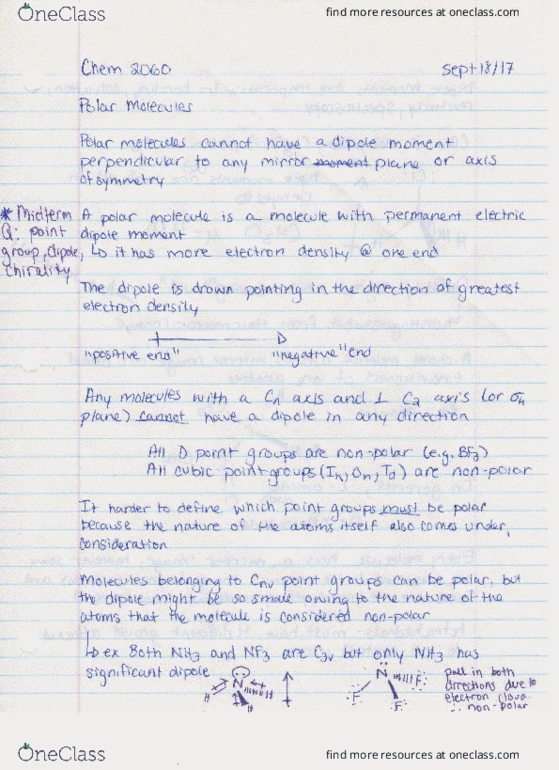 OneClass
find more resources at oneclass.com
Chem 2060
Sept 18/17
Polar Molecules
Polar molecules cannot have a dipole moment
perpendicular to any mirror moment plane or axis
of symmetry
* Midterm
Q: point
group, dipole,
chirality
A polar molecule is a molecule with permanent electric
dipole moment
↳ it has more electron density @ one end
The dipole is drawn pointing in the direction of greatest
electron density
"positive end"
"negative" end
Any molecules with a Cn axis and ⊥ C2 axis (or σh
plane) cannot have a dipole in any direction
All D point groups are non-polar (e.g, BF3)
All cubic point groups (Ih, Oh, Td) are non-polar
It harder to define which point groups must be polar
because the nature of the atoms itself also comes under
consideration
Molecules belonging to Cnv point groups can be polar, but
the dipole might be so small owing to the nature of the
atoms that the molecule is considered non-polar
↳ ex Both NH3 and NF3 are C3v but only NH3 has
significant dipole
N
H
H
H
N
F
F
F
pull in both
directions due to
electron cloud
∴ non-polar
OneClass
find more resources at oneclass.com